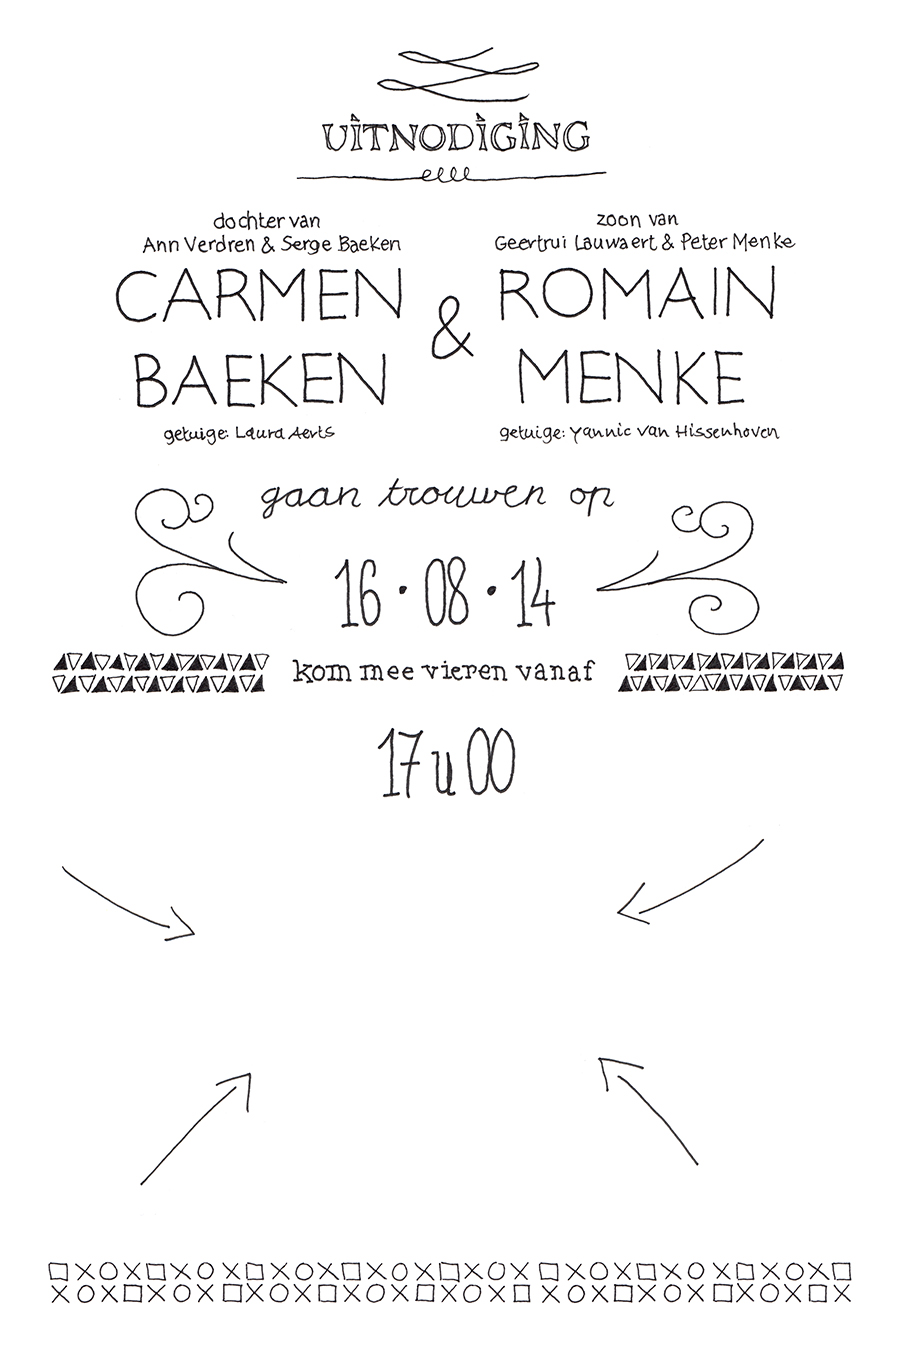 UITNODIGING
dochter van
Ann Verdren & Serge Baeken
CARMEN
BAEKEN
getuige: Laura Aerts
&
zoon van
Geertrui Lauwaert & Peter Menke
ROMAIN
MENKE
getuige: Yannic van Hissenhoven
gaan trouwen op
16 • 08 • 14
kom mee vieren vanaf
17 u 00